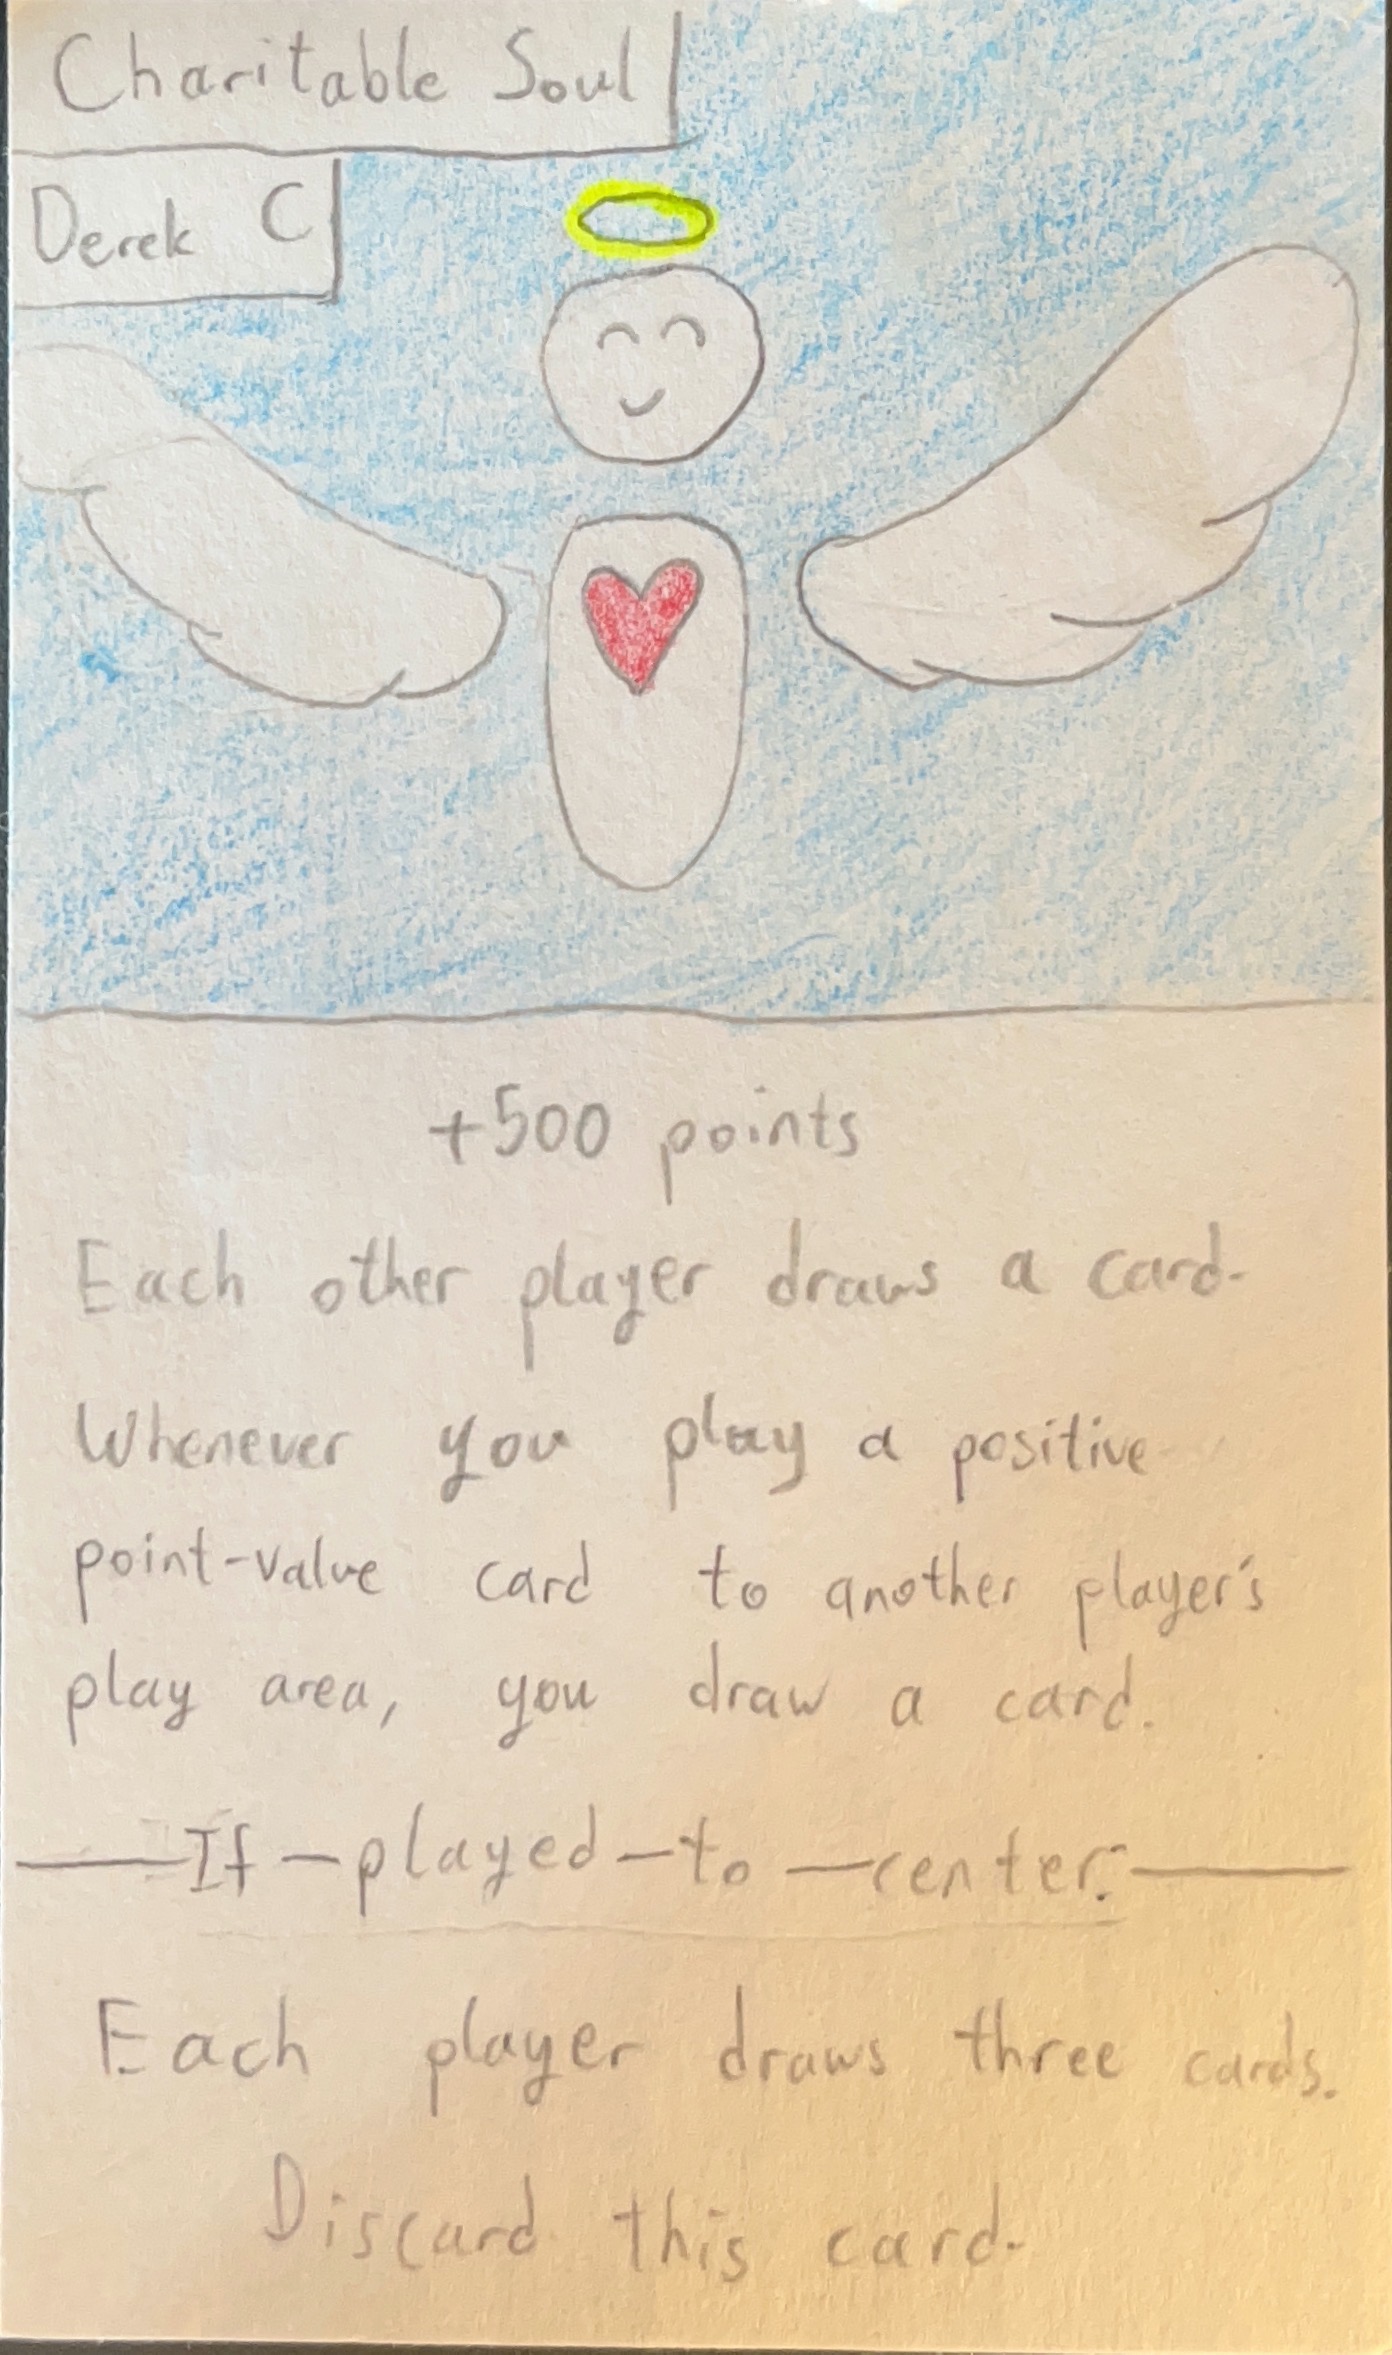 Charitable Soul
Derek C
+500 points
Each other player draws a card.
Whenever you play a positive
point-value card to another player's
play area, you draw a card.
If-played-to-center:
Each player draws three cards.
Discard this card.